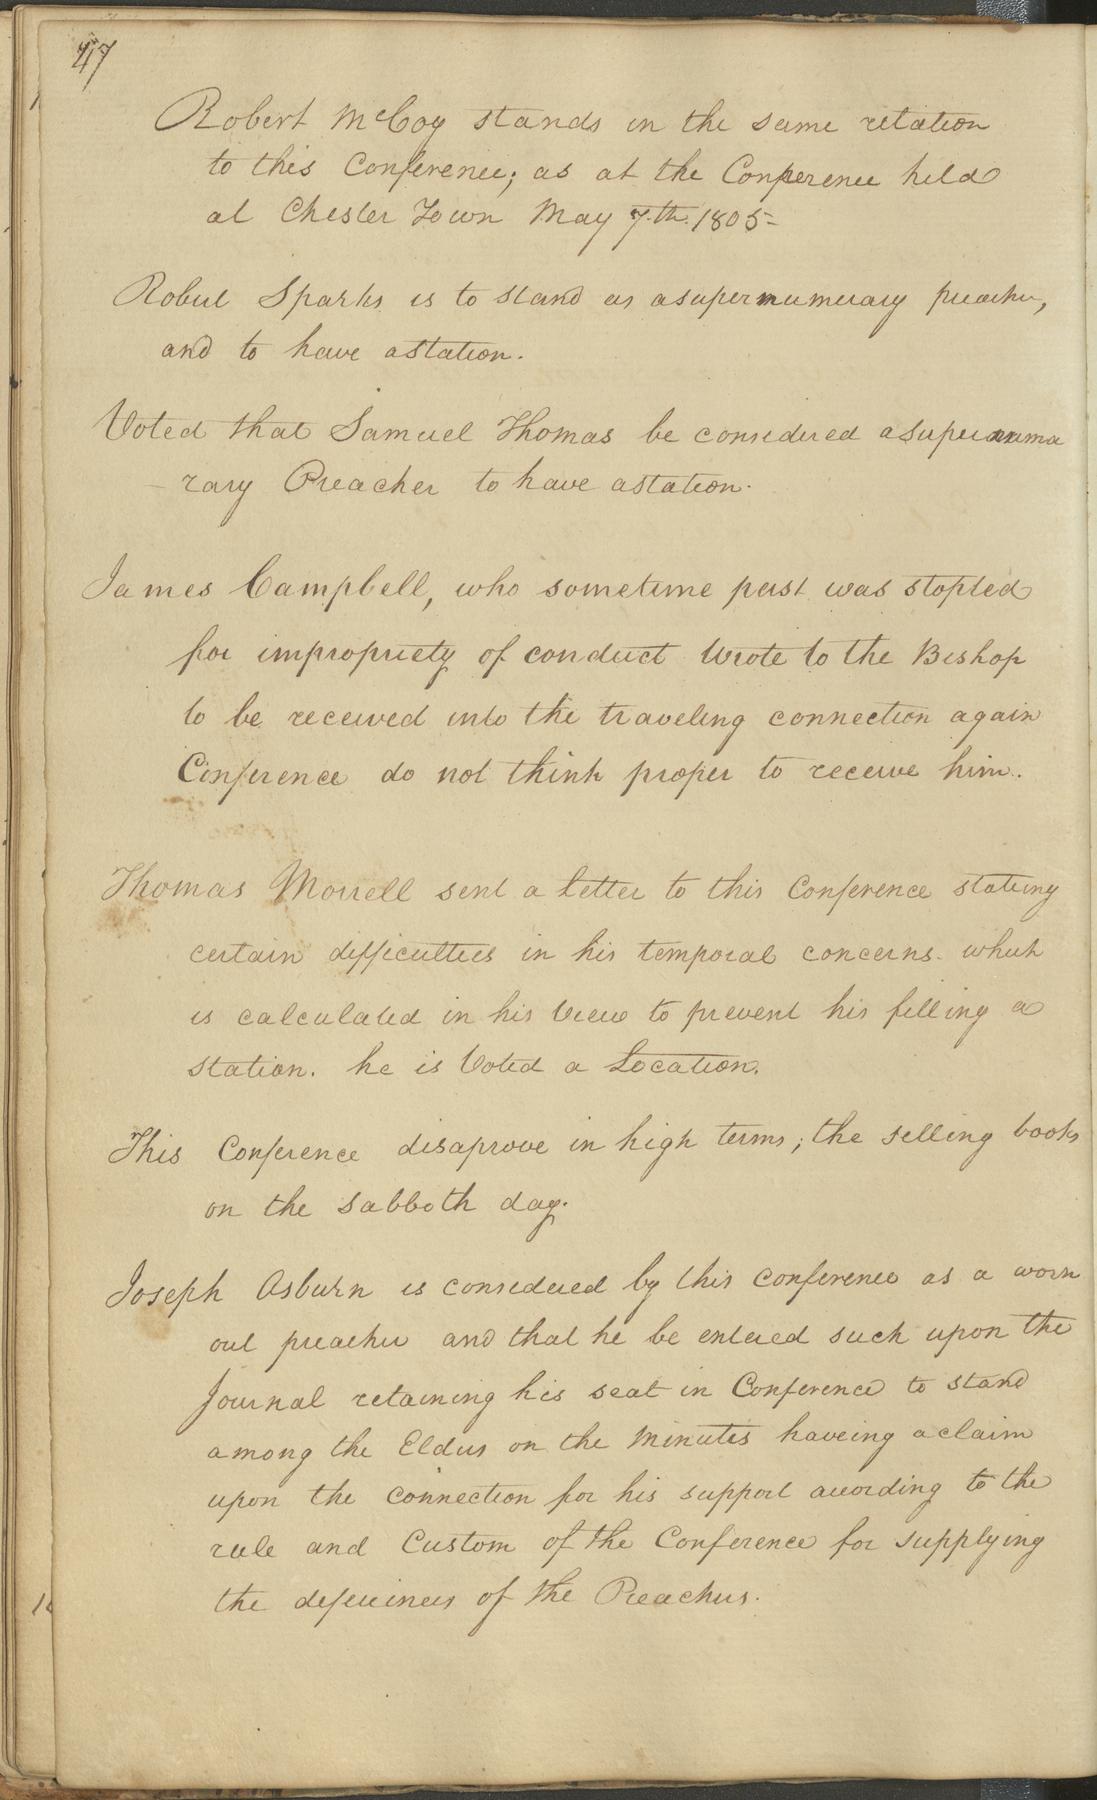 47
Robert McCoy stands in the same relation
to this Conference; as at the Conference held
at Chester Town May 7.th. 1805-
Robert Sparks is to stand as a supernumerary preacher,
and to have a station.
Voted that Samuel Thomas be considered a supernuma
- rary Preacher to have a station.
James Campbell, who sometime past was stopted
for impropriety of conduct Wrote to the Bishop
to be received into the traveling connection again
Conference do not think proper to receive him.
Thomas Morrell sent a letter to this Conference stateing
certain difficulties in his temporal concerns. which
is calculated in his View to prevent his filling a
station. he is Voted a Location.
This Conference disaprove in high terms; the selling books
on the sabboth day.
Joseph Osburn is considered by this conference as a worn
out preacher and that he be entered such upon the
Journal retaining his seat in Conference to stand
among the Elders on the minutes haveing a claim
upon the connection for his support according to the
rule and Custom of the Conference for supplying
the deficiences of the Preachers.